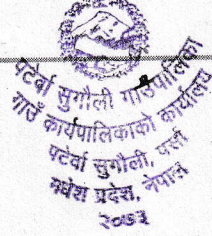 पटेर्वा सुगौली गाउँपालिका
गाउँ कार्यपालिकाको कार्यालय
पटेर्वा सुगौली, पर्सा
मधेश प्रदेश, नेपाल
२०७३